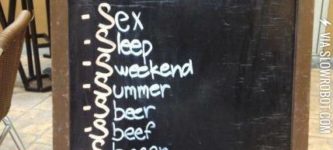 Sex
Sleep
Sweekend
Summer
beer
beef
VIA SLOWROBOT.COM